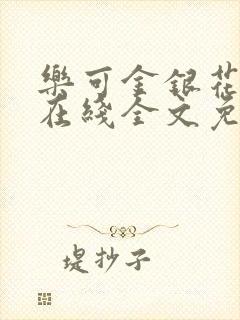 樂可金銀花
在綫全文免
堤抄子